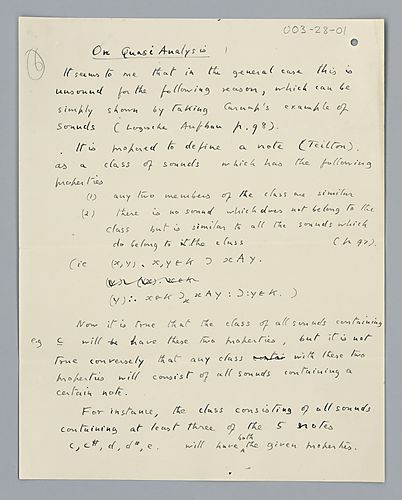 003-28-01
16
On Quasi Analysis 1
It seems to me that in the general case this is
unsound for the following reason, which can be
simply shown by taking Carnap's example of
sounds (Logische Aufbau p. 98).
It is proposed to define a note (Teilton).
as a class of sounds which has the following
properties
(1) any two members of the class are similar
(2) there is no sound which does not belong to the
class but is similar to all the sounds which
do belong to the class (p 98).
(ie (x,y). x,y ε K ⊃ x A y.
(y) ∴ x ε K ⊃x x A y : ⊃ : y ε K. )
Now it is true that the class of all sounds containing
e.g. c will have these two properties, but it is not
true conversely that any class with these two
properties will consist of all sounds containing a
certain note.
For instance, the class consisting of all sounds
containing at least three of the 5 notes
c, c#, d, d#, e. will have both the given properties.